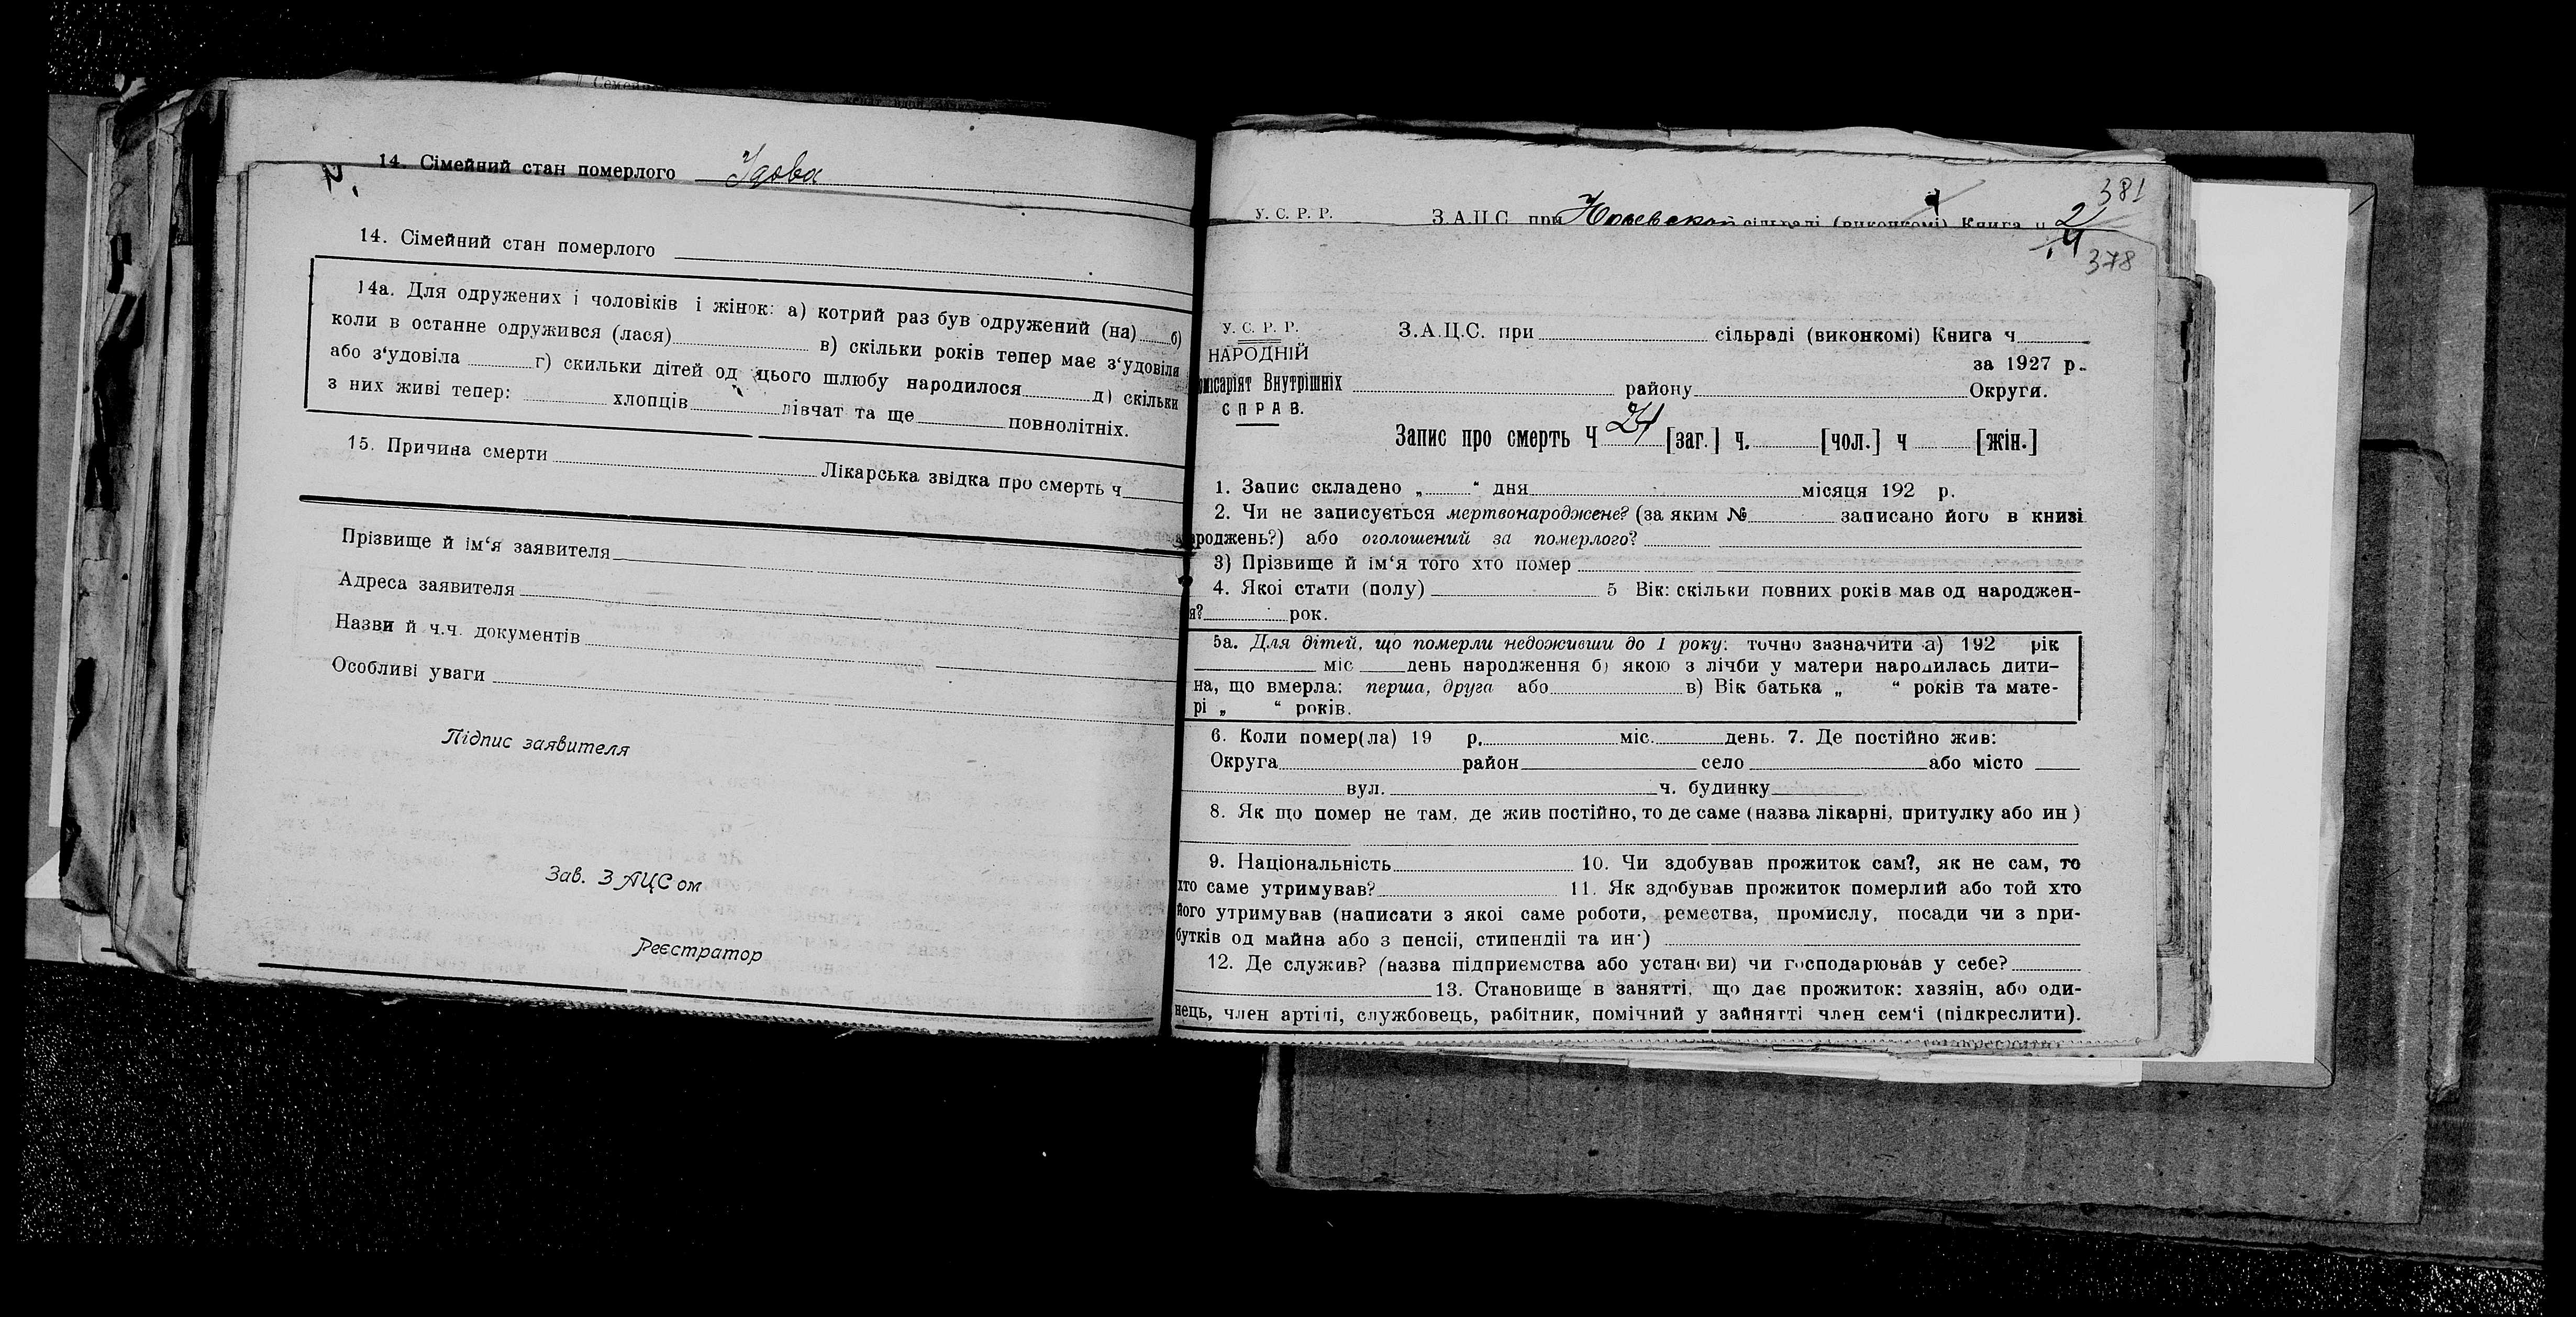 14. Сімейний стан померлого Удова
14. Сімейний стан померлого
14а. Для одружених і чоловіків і жінок: а) котрий раз був одружений (на) б)
коли в останне одружився (лася) в) скільки років тепер має з‘удовіли
або з‘удовіла г) скильки дітей од цього шлюбу народилося д) скільки
з них живі тепер: хлопців дівчат та ще повнолітніх.
15. Причина смерти Лікарська звідка про смерть ч
Прізвище й ім‘я заявителя
Адреса заявителя
Назви й ч.ч. документів
Особливі уваги
Підпис заявителя
Зав. ЗАЦСом
Реєстратор
381
У. С. Р. Р. З.А.Ц.С. при сільраді (виконкомі) Книга ч 2
4
378
У. С. Р. Р. З.А.Ц.С. при сільраді (виконкомі) Книга ч
НАРОДНІЙ за 1927 р.
місаріят Внутрішніх району Округи.
СПРАВ.
Запис про смерть Ч 24 [заг.] ч. [чол.] ч [жін.]
1. Запис складено „ “ дня місяця 192 р.
2. Чи не записується мертвонароджене? (за яким № записано його в книзі
роджень?) або оголошений за померлого?
3) Прізвище й ім‘я того хто помер
4. Якої стати (полу) 5 Вік: скільки повних років мав од народжен-
я? рок.
5а. Для дітей, що померли недоживши до 1 року: точно зазначити а) 192 рік
міс день народження б) якою з лічби у матери народилась дити-
на, що вмерла: перша, друга або в) Вік батька „ “ років та мате-
рі „ “ років.
6. Коли помер(ла) 19 р. міс. день. 7. Де постійно жив:
Округа район село або місто
вул. ч. будинку
8. Як що помер не там, де жив постійно, то де саме (назва лікарні, притулку або ин )
9. Національність 10. Чи здобував прожиток сам?, як не сам, то
хто саме утримував? 11. Як здобував прожиток померлий або той хто
його утримував (написати з якої саме роботи, ремества, промислу, посади чи з при-
бутків од майна або з пенсії, стипендії та ин·)
12. Де служив? (назва підприємства або установи) чи господарював у себе?
13. Становище в занятті, що дає прожиток: хазяін, або оди-
нець, член артілі, службовець, рабітник, помічний у зайнятті член сем‘і (підкреслити).